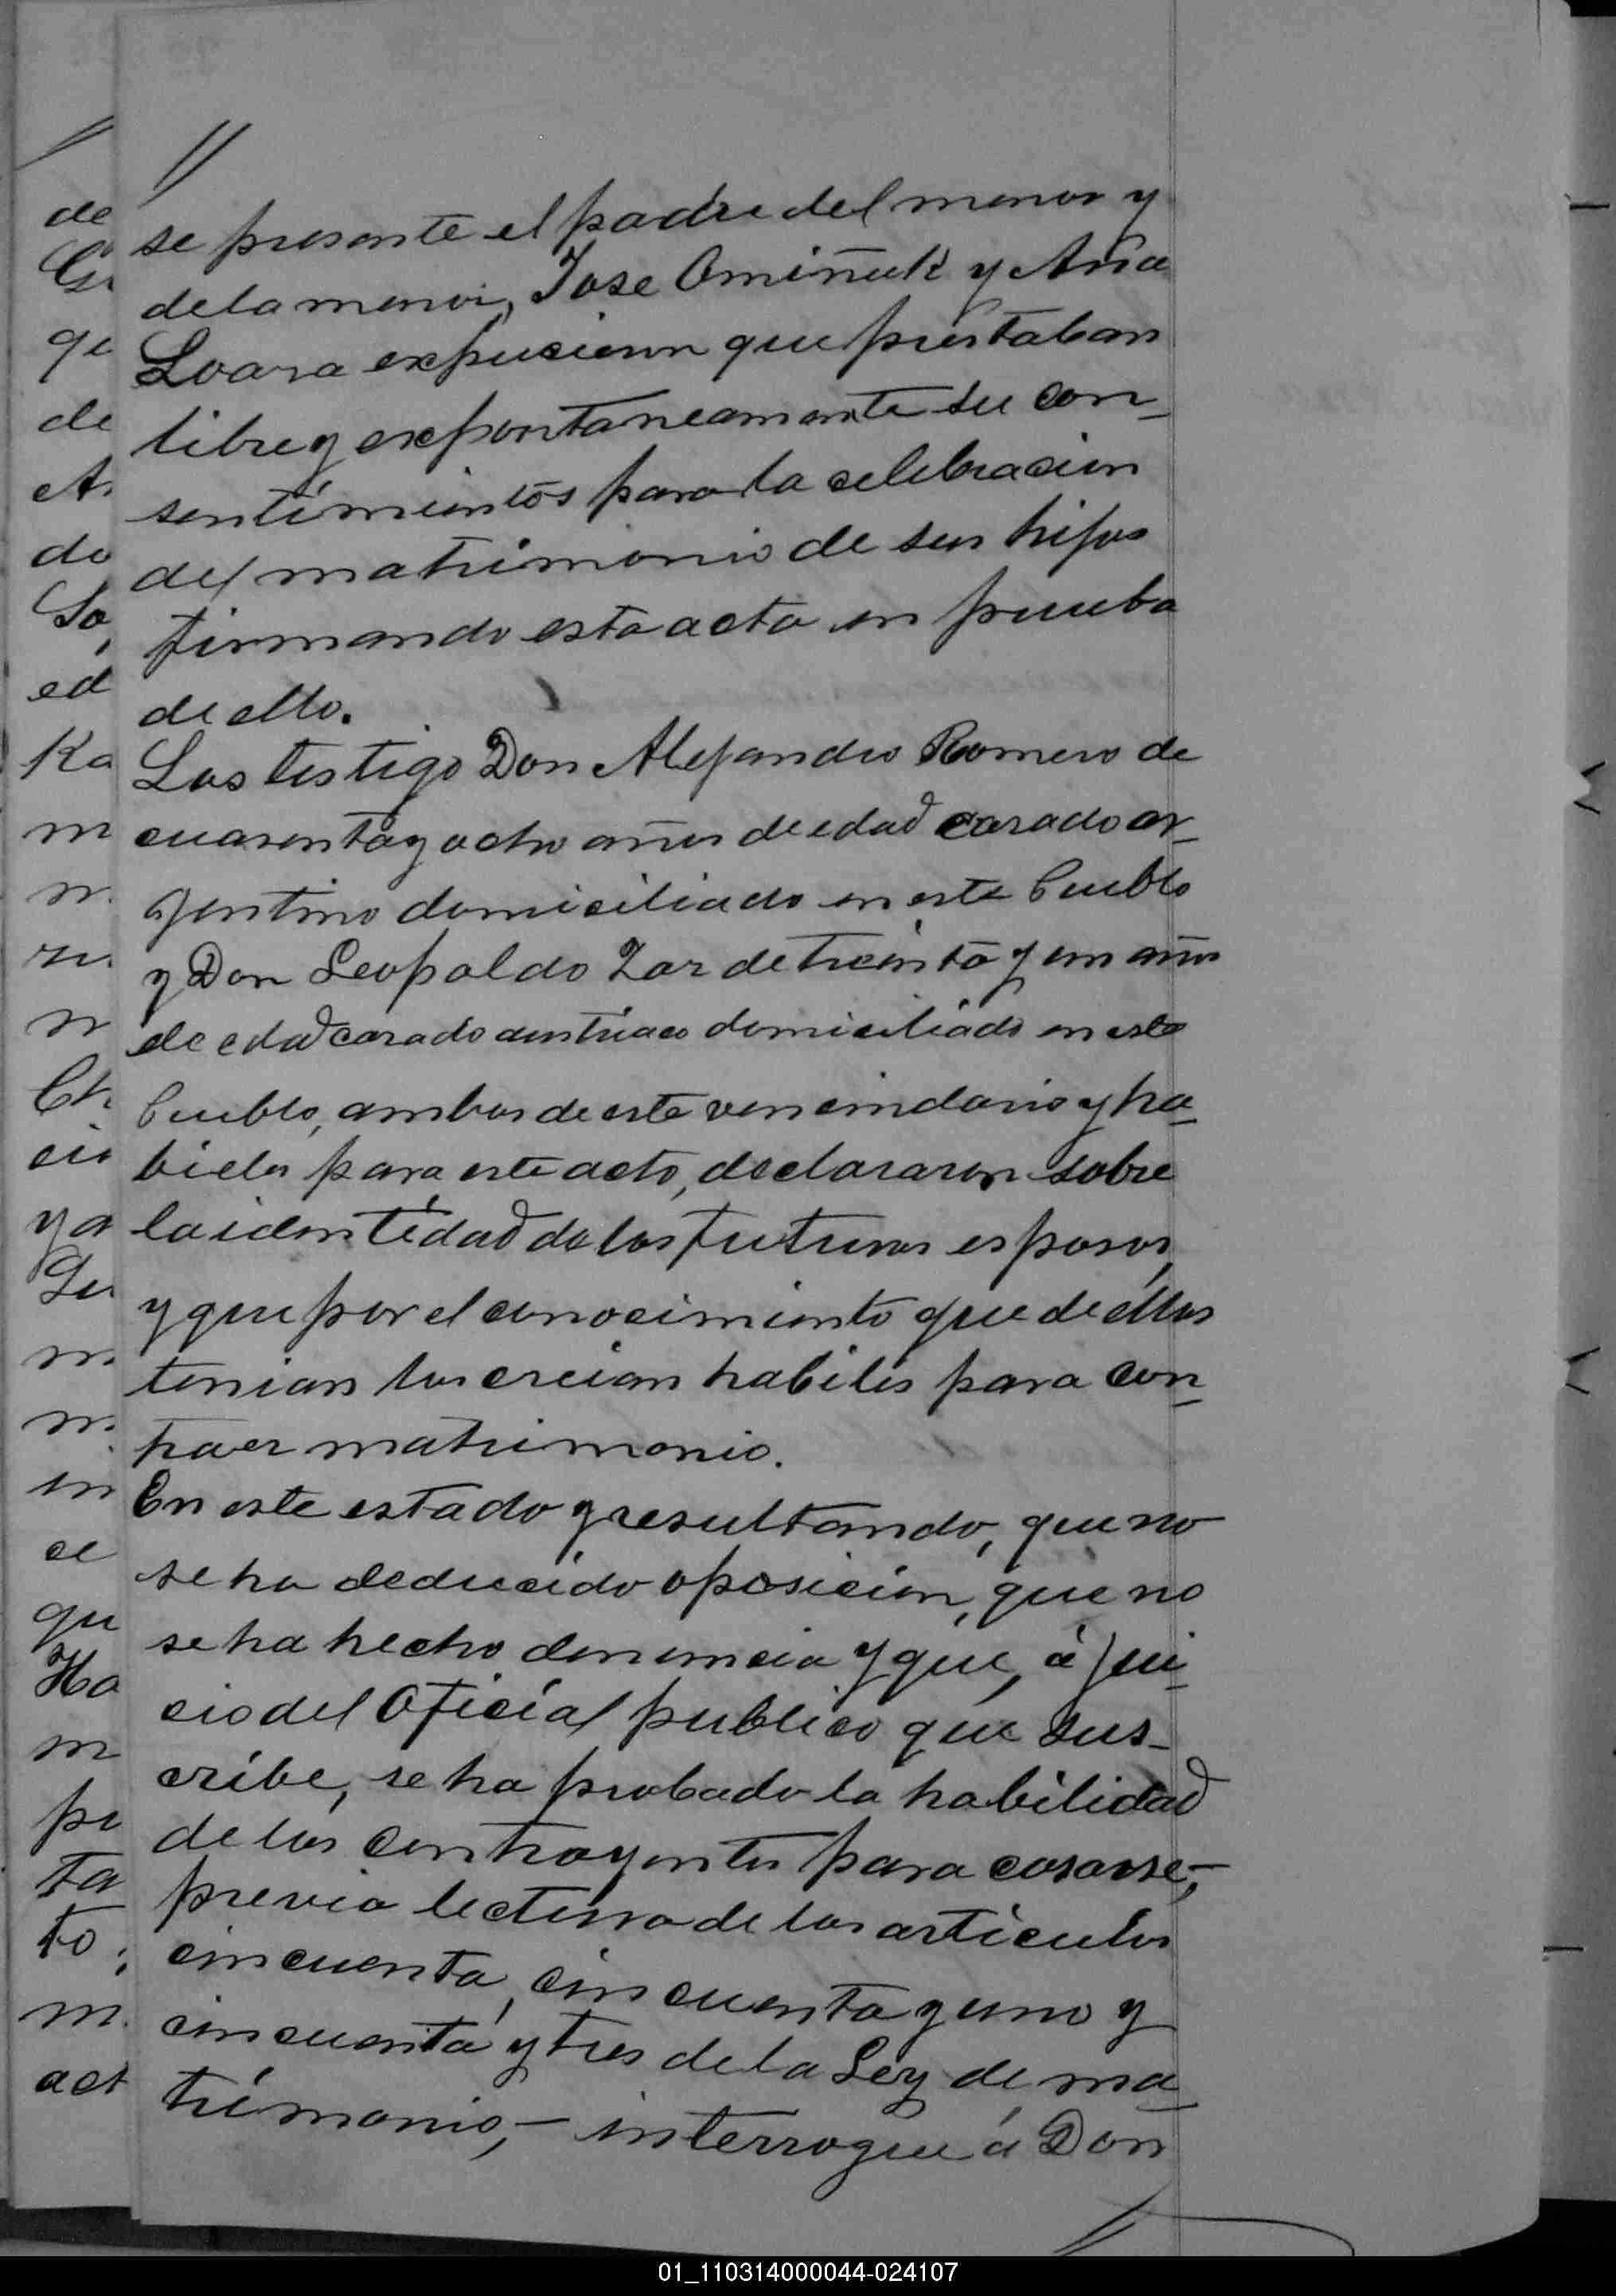 //
se presente el padre del menor y
de la menor, Jose Omiñuk y Ana
Loara expusieron que prestaban
libre y expontaneamente su con_
sentimientos para la celebracion
del matrimonio de sus hijos
firmando esta acta en prueba
de ello.
Los testigo Don Alejandro Romero de
cuarenta y ocho años de edad casado ar_
gentino domiciliado en este Pueblo
y Don Leopoldo Zar de treinta y un años
de edad casado austriaco domiciliado en este
Pueblo, ambos de este vencindario y ha_
biles para este acto, declararon sobre
la identidad de los futuros esposos,
y que por el conocimiento que de ellos
tenian los creian habiles para con_
traer matrimonio.
En este estado y resultando, que no
se ha deducido oposicion, que no
se ha hecho denuncia y que, á jui_
cio del Oficial publico que sus_
cribe, se ha probado la habilidad
de los contrayentes para casarse,-
previa lectura de los articulos
cincuenta, cincuenta y uno y
cincuenta y tres de la Ley de ma_
trimonio,- interrogue á Don
de
qe
de
A
do
So,
ed
Ka
m
n
n
Ch
cio
y a
m
in
ce
qu
Ha
m
pr
ta
to;
m
act
01_110314000044-024107